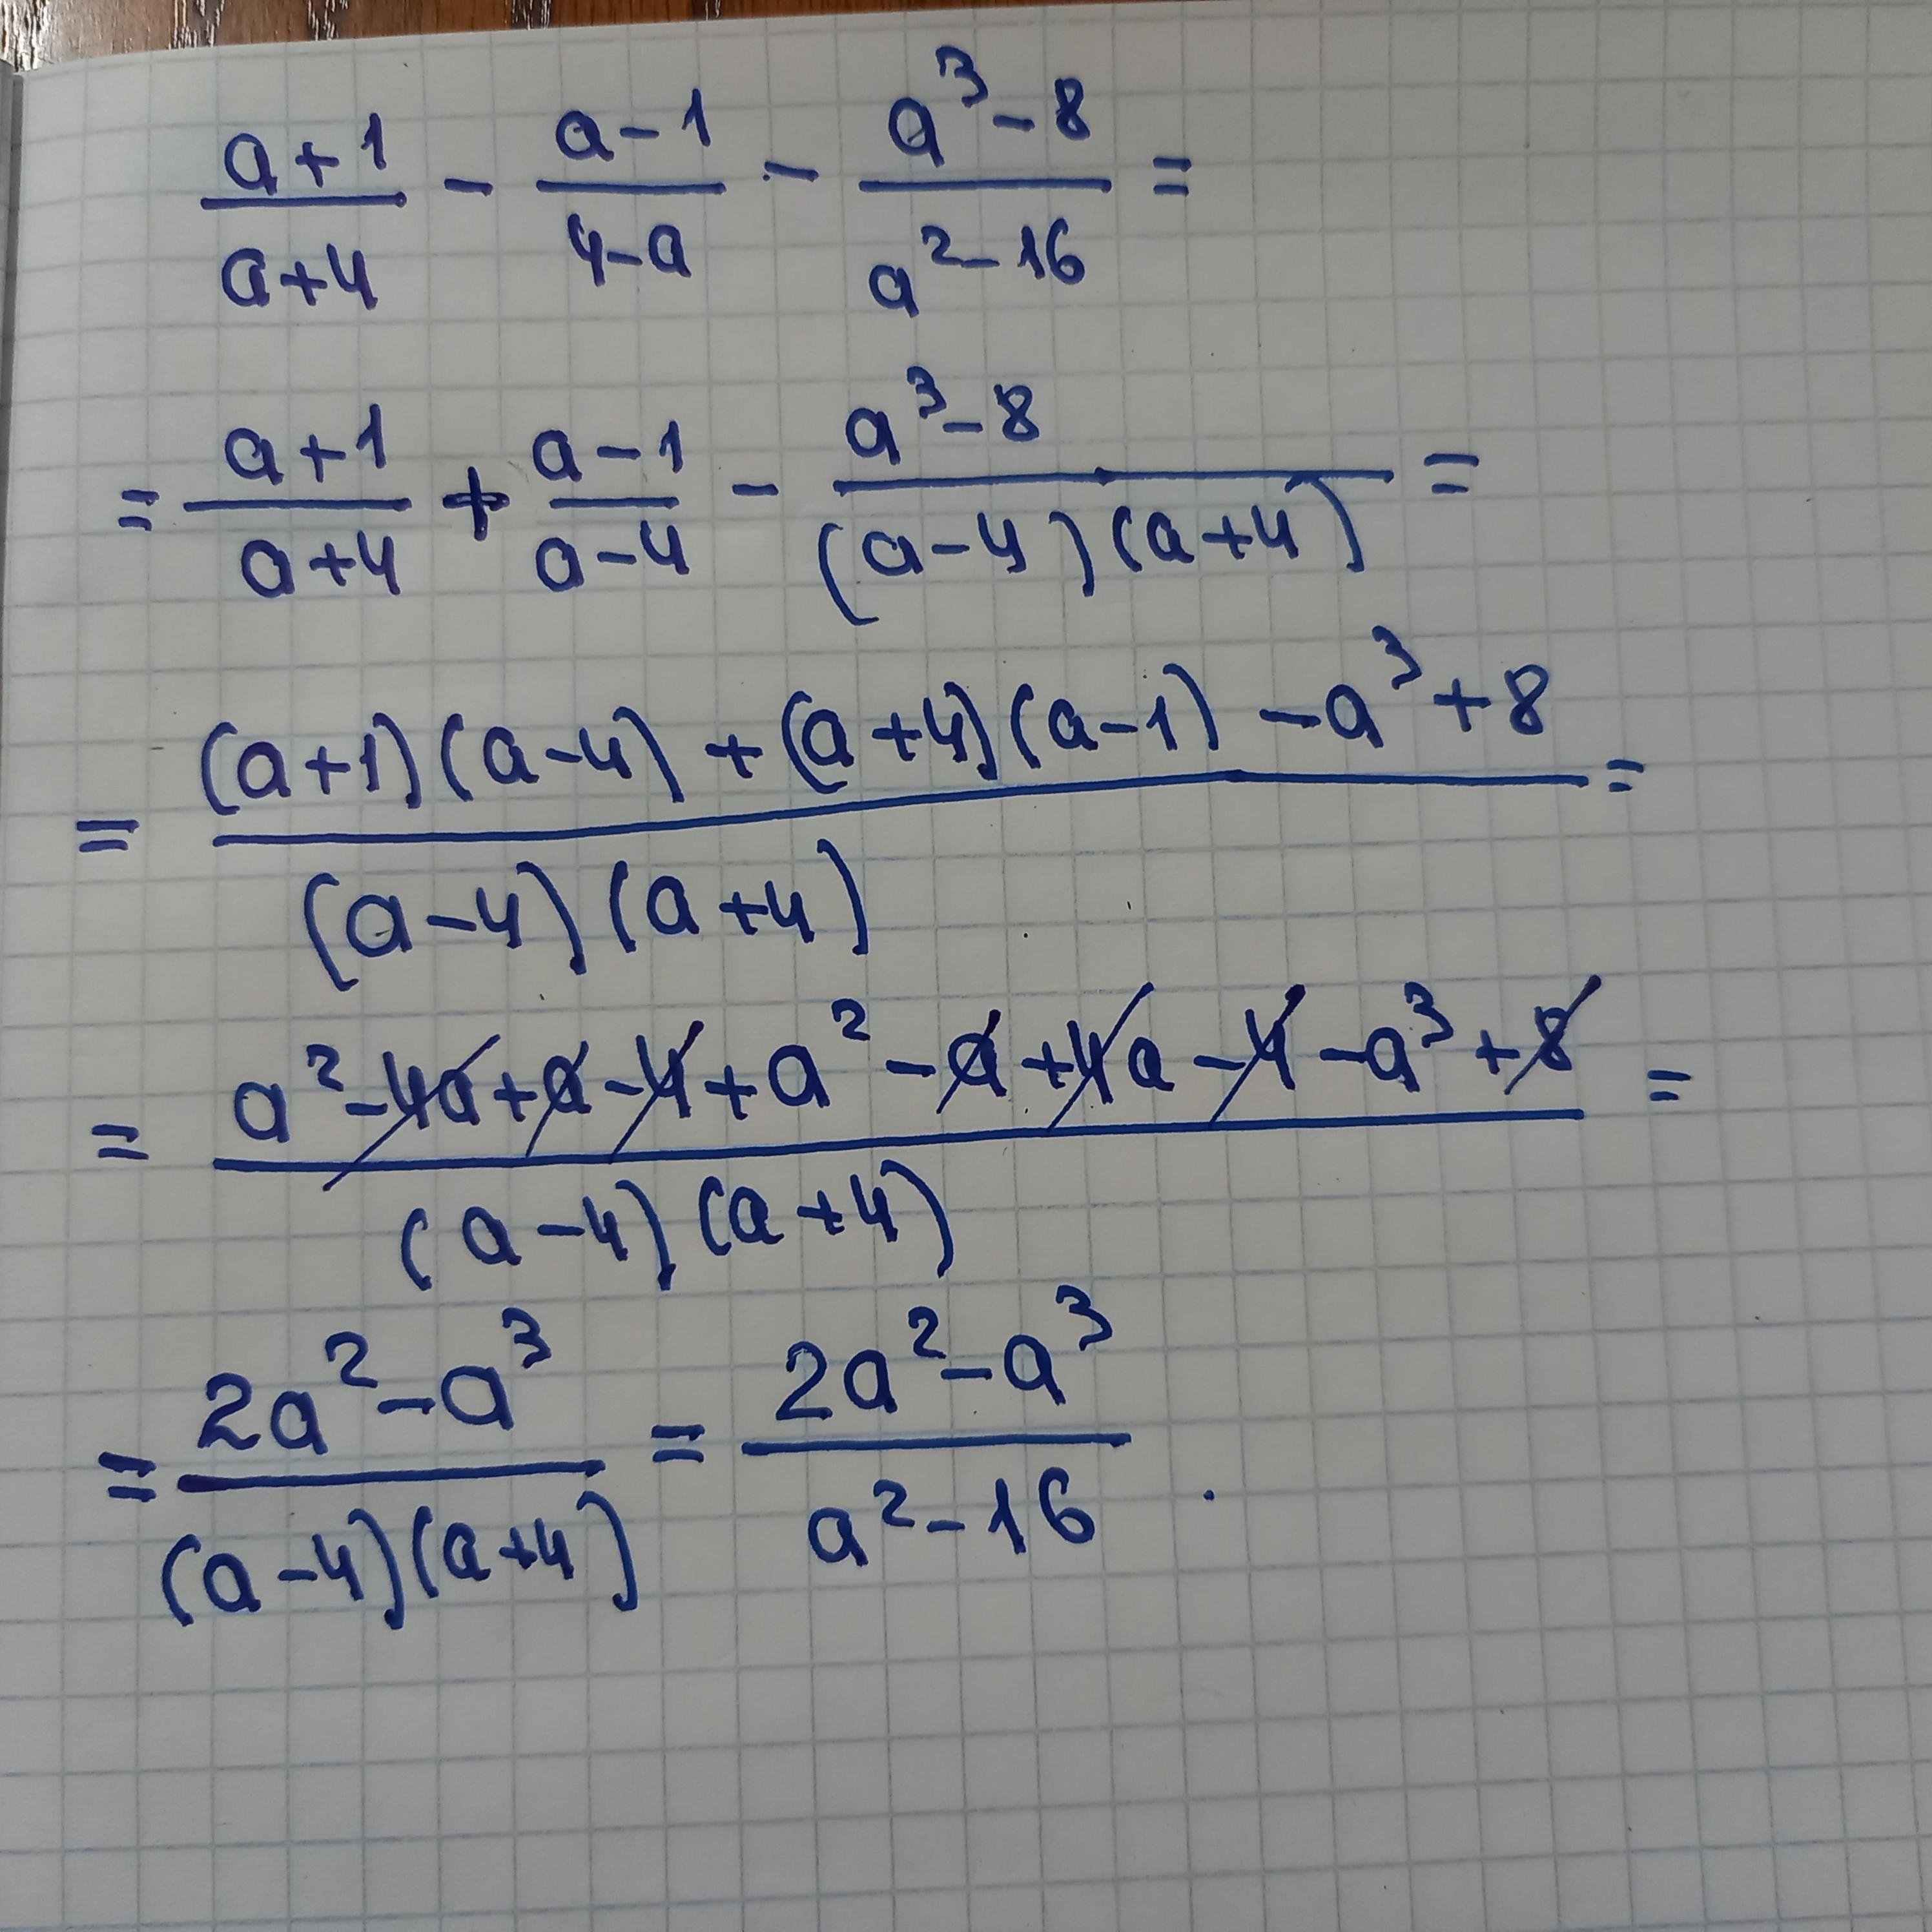 (a+1)/(a+4) - (a-1)/(4-a) - (a³-8)/(a²-16) =
= (a+1)/(a+4) + (a-1)/(a-4) - (a³-8)/((a-4)(a+4)) =
= ((a+1)(a-4)+(a+4)(a-1)-a³+8)/((a-4)(a+4)) =
= (a²-4a+a-4+a²-a+4a-4-a³+8)/((a-4)(a+4)) =
= (2a²-a³)/((a-4)(a+4)) = (2a²-a³)/(a²-16) .